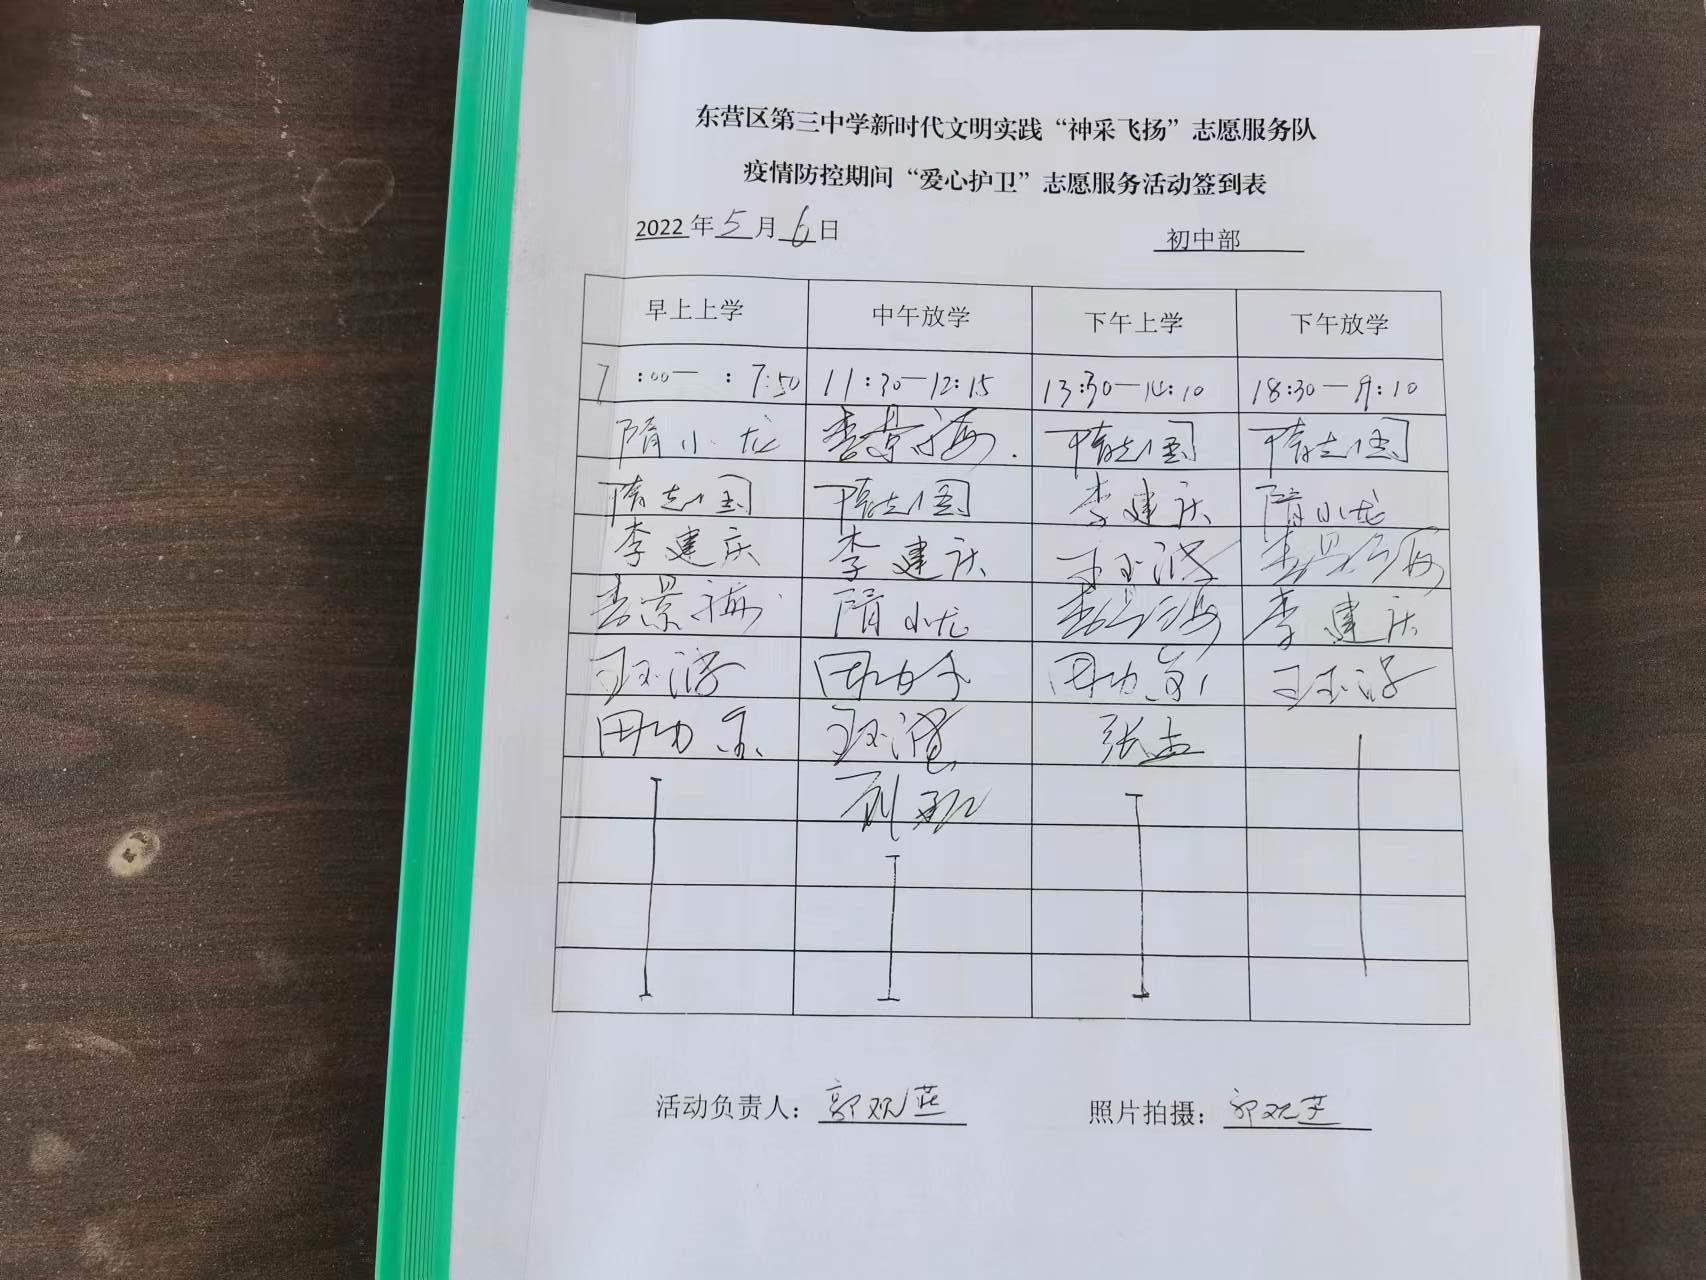 东营区第三中学新时代文明实践“神采飞扬”志愿服务队
疫情防控期间“爱心护卫”志愿服务活动签到表
2022年5月6日 初中部
早上上学 中午放学 下午上学 下午放学
7:00— : 7:50 11:30—12:15 13:30—14:10 18:30—19:10
隋小龙 李景海 隋志国 隋志国
隋志国 隋志国 李建庆 隋小龙
李建庆 李建庆 李景海
李景海 隋小龙 李景海 李建庆
田功
张孟
活动负责人：郭观芷 照片拍摄：郭观芷